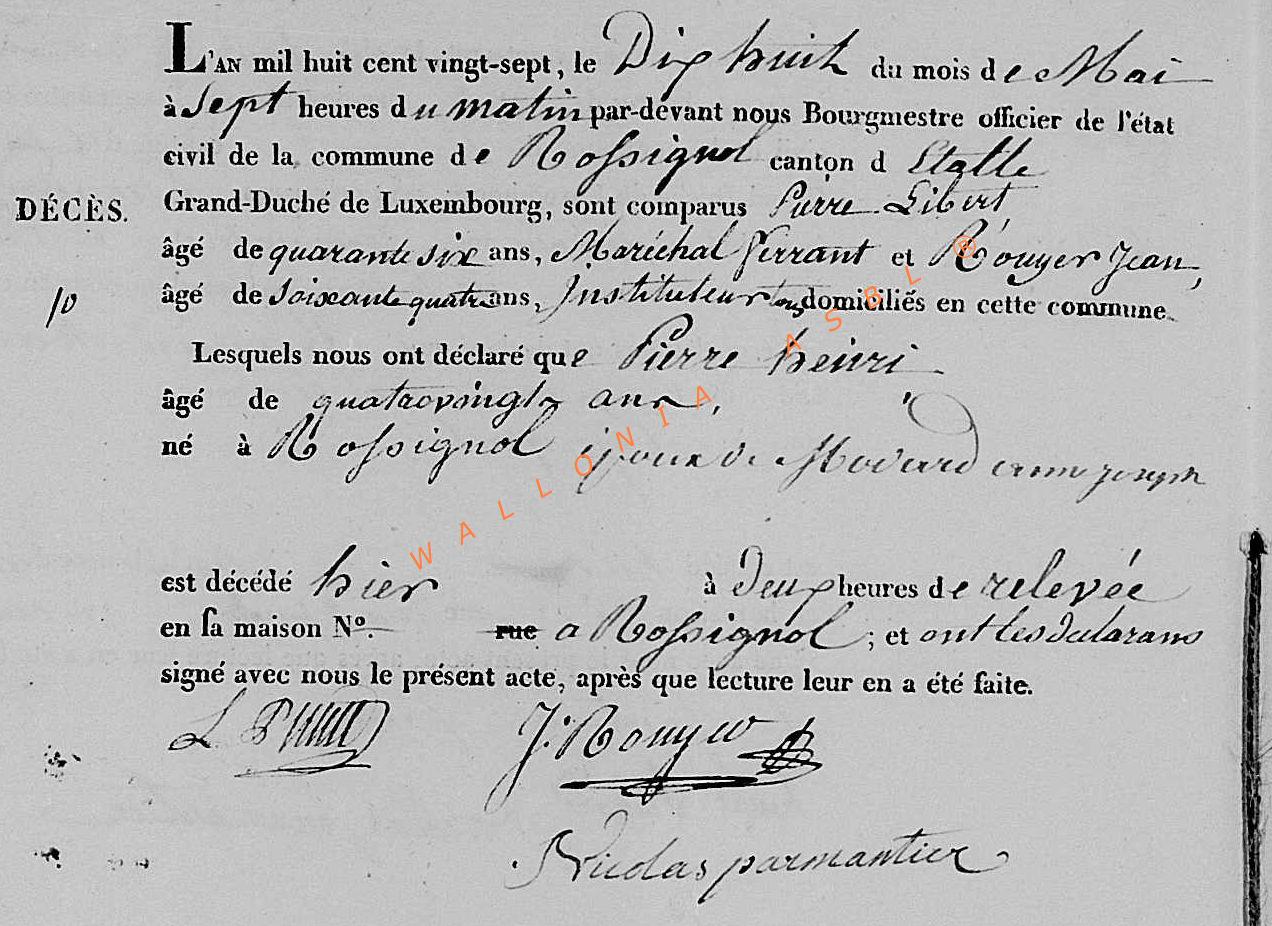 L'AN mil huit cent vingt-sept, le Dix huit du mois de Mai
à Sept heures du matin par-devant nous Bourgmestre officier de l'état
civil de la commune de Rossignol canton d Etalle
DÉCÈS. Grand-Duché de Luxembourg, sont comparus Pierre Libert
âgé de quarante six ans, Maréchal ferrant et Rouyer Jean,
10 âgé de Soixante quatre ans, Instituteur tous domiciliés en cette commune.
Lesquels nous ont déclaré que Pierre henri
âgé de quatrevingts ans,
né à Rossignol époux de Modard anne joseph
est décédé hier à Deux heures de relevée
en sa maison N°. rue a Rossignol ; et ont les déclarans
signé avec nous le présent acte, après que lecture leur en a été faite.
J: Rouyer
Nicolas parmantier
WALLONIA ASBL ®